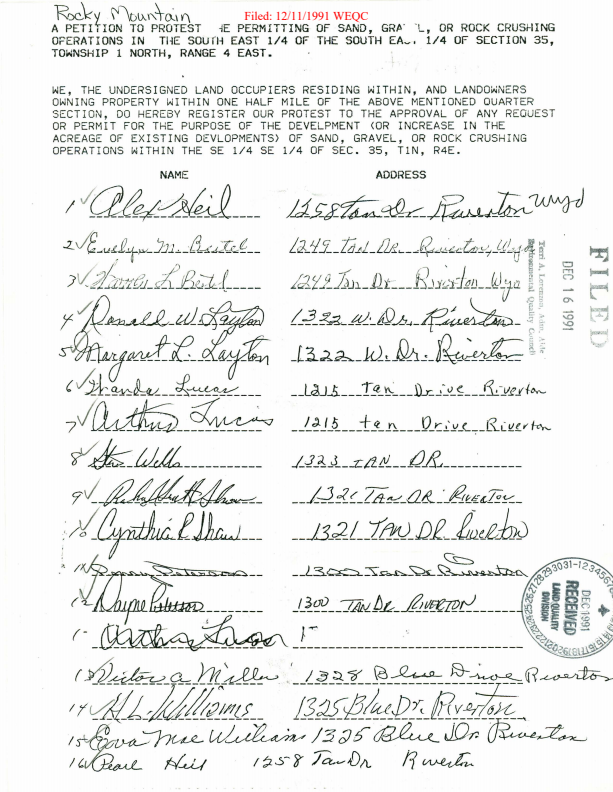 Rocky Mountain
Filed: 12/11/1991 WEQC
A PETITION TO PROTEST THE PERMITTING OF SAND, GRAVEL, OR ROCK CRUSHING
OPERATIONS IN THE SOUTH EAST 1/4 OF THE SOUTH EAST 1/4 OF SECTION 35,
TOWNSHIP 1 NORTH, RANGE 4 EAST.
WE, THE UNDERSIGNED LAND OCCUPIERS RESIDING WITHIN, AND LANDOWNERS
OWNING PROPERTY WITHIN ONE HALF MILE OF THE ABOVE MENTIONED QUARTER
SECTION, DO HEREBY REGISTER OUR PROTEST TO THE APPROVAL OF ANY REQUEST
OR PERMIT FOR THE PURPOSE OF THE DEVELPMENT (OR INCREASE IN THE
ACREAGE OF EXISTING DEVLOPMENTS) OF SAND, GRAVEL, OR ROCK CRUSHING
OPERATIONS WITHIN THE SE 1/4 SE 1/4 OF SEC. 35, T1N, R4E.
NAME ADDRESS
1 Alex Heil 1258 Tan Dr Riverton Wyo
2 Evelyn M. Bertel 1249 Tan Dr. Riverton, Wyo
3 L Bertel 1249 Tan Dr Riverton Wyo
4 Ronald W Layton 1322 W. Dr. Riverton
5 Margaret L. Layton 1322 W. Dr. Riverton
6 Wanda Lucas 1215 tan Drive Riverton
7 Arthur Lucas 1215 tan Drive Riverton
8 Wells 1323 TAN DR.
9 Shaw 1321 TAN DR RIVERTON
10 Cynthia R Shaw 1321 TAN DR Riverton
11 Peterson 1300 Tan Dr Riverton
12 Wayne Peterson 1300 TAN DR. RIVERTON
1 Arthur Lucas 1
13 Victor A Miller 1328 Blue Drive Riverton
14 H.L. Williams 1325 Blue Dr. Riverton
15 Eva Mae Williams 1325 Blue Dr. Riverton
16 Pearl Heil 1258 Tan Dr Riverton
FILED
DEC 16 1991
Terri A. Lorenzon, Adm. Aide
Environmental Quality Council
DEC 1991
RECEIVED
LAND QUALITY
DIVISION